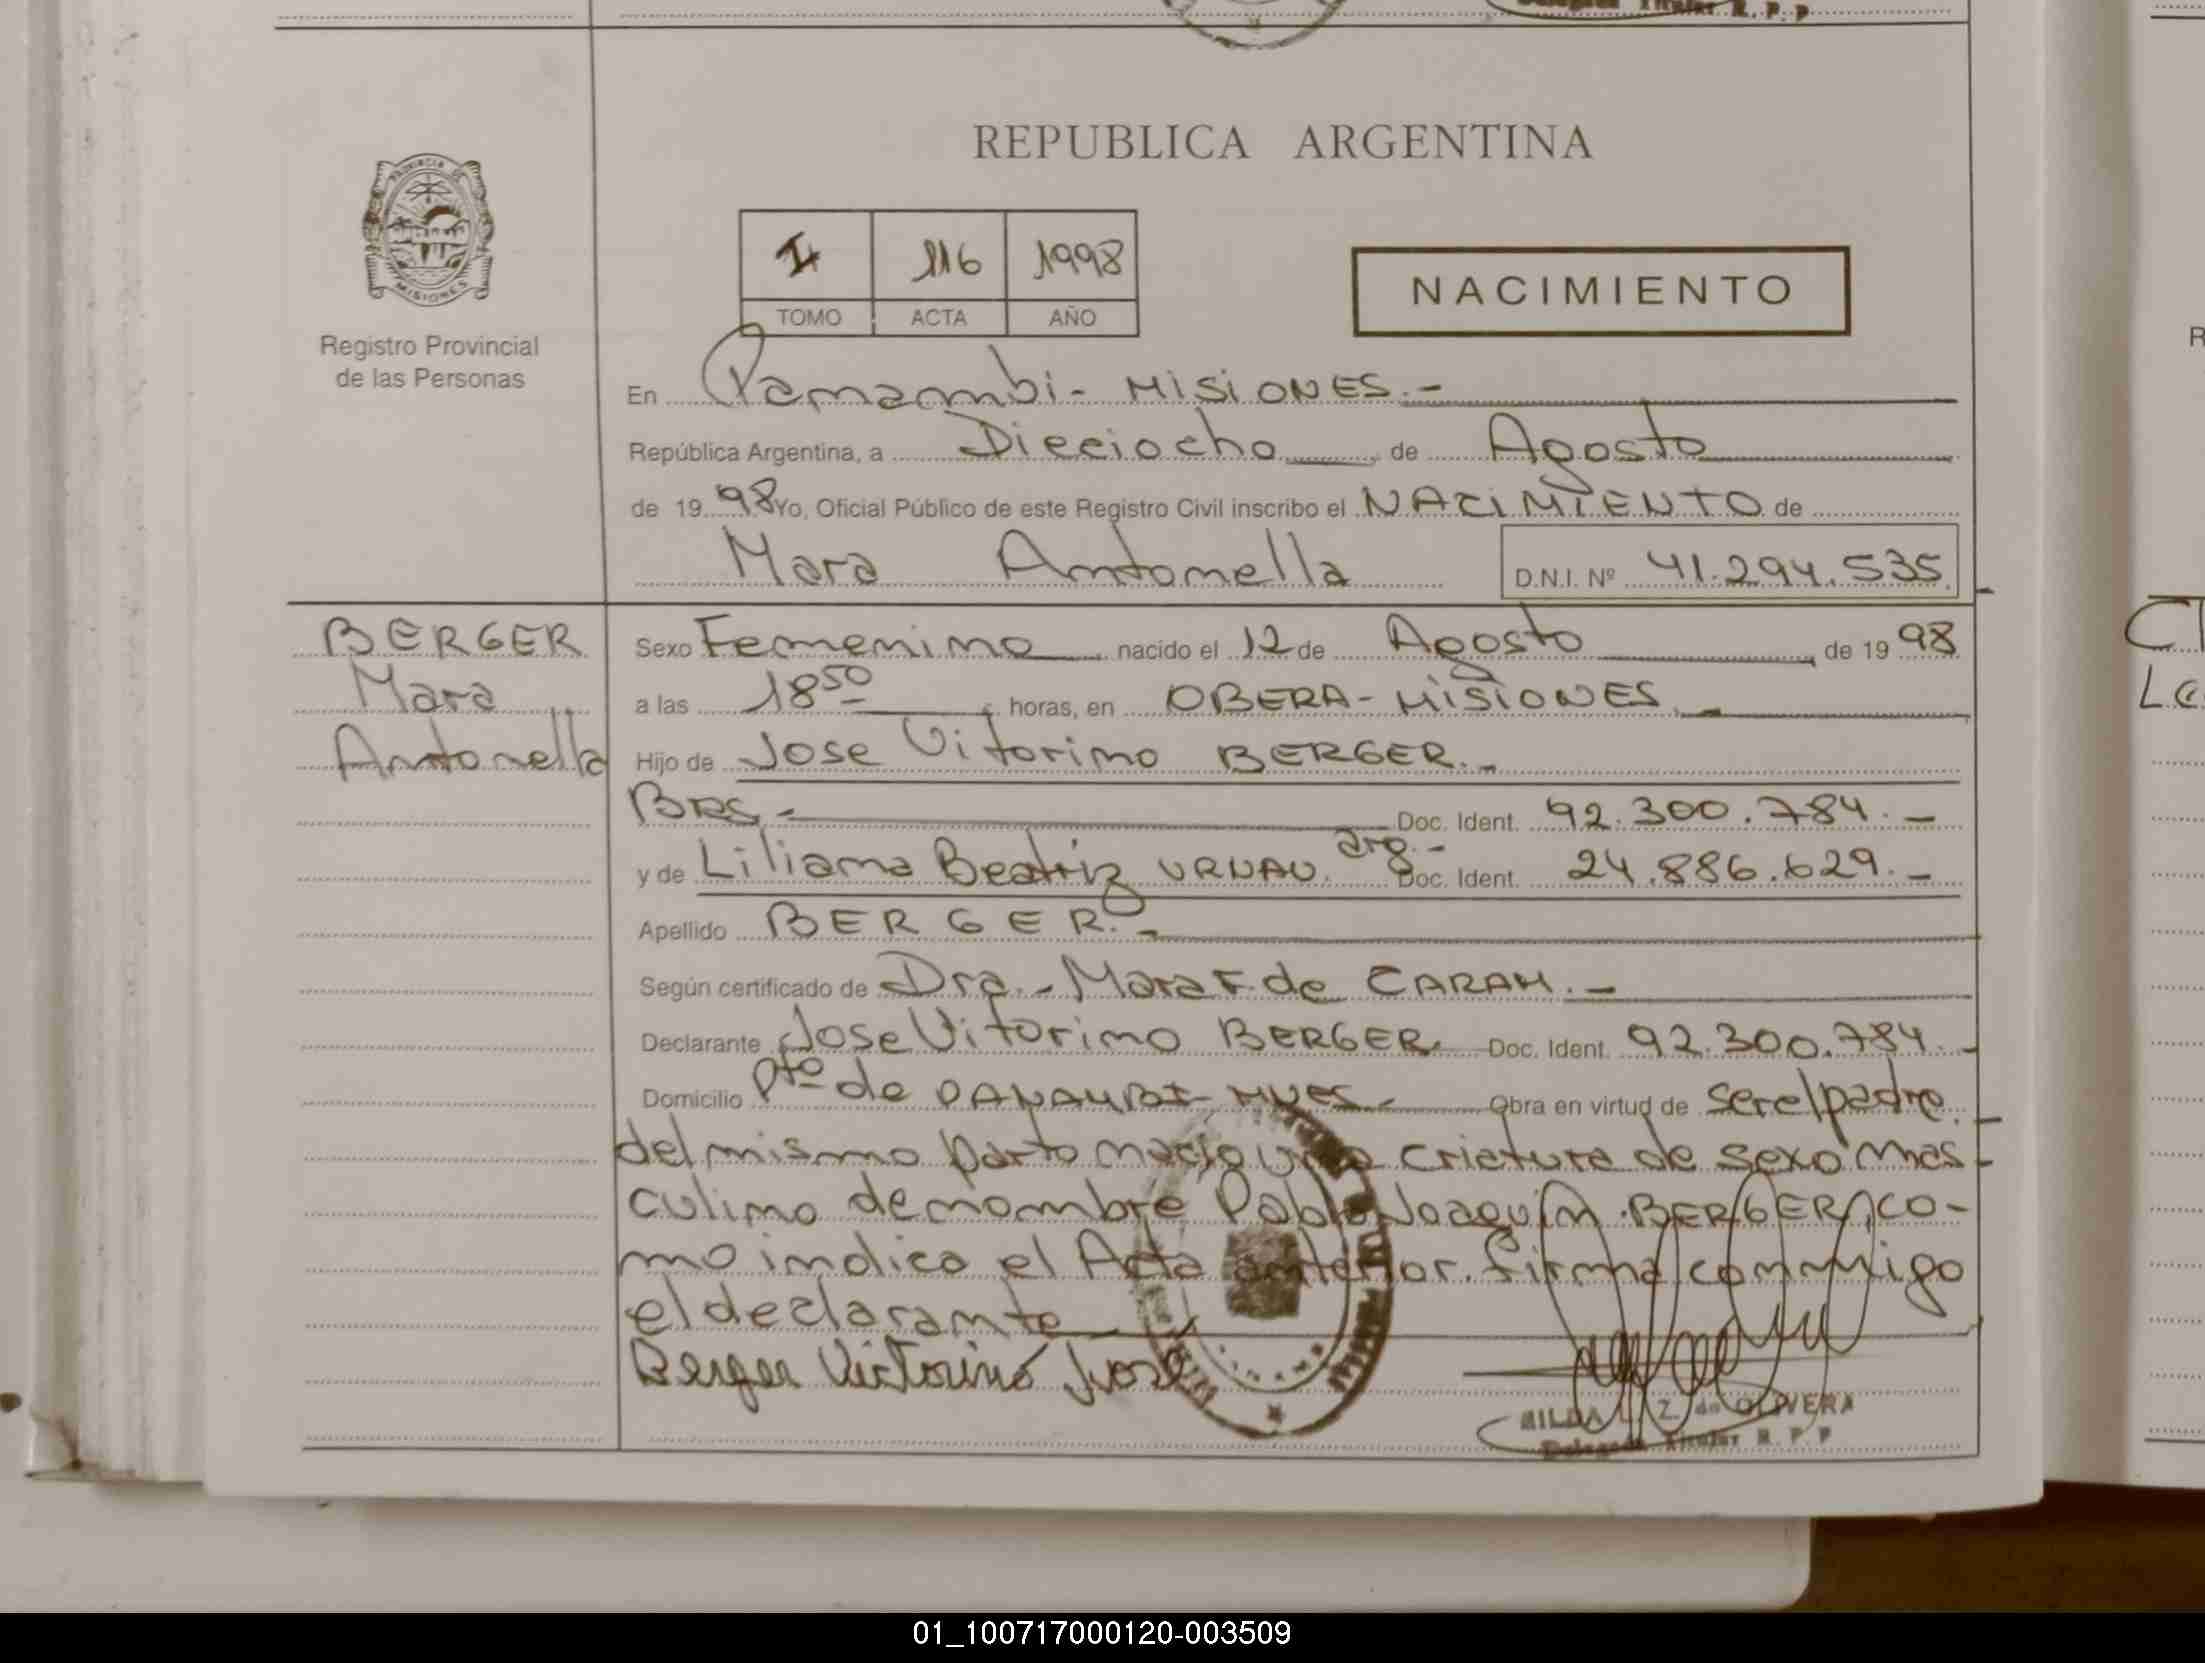 Titular R. P. P
REPUBLICA ARGENTINA
PROVINCIA DE
MISIONES
Registro Provincial
de las Personas
I 116 1998
TOMO ACTA AÑO
NACIMIENTO
En Panambi - MISIONES.-
República Argentina, a Dieciocho de Agosto
de 19 98 Yo, Oficial Público de este Registro Civil inscribo el NACIMIENTO de
Mara Antonella D.N.I. Nº 41.294.535
BERGER
Mara
Antonella
Sexo Femenino nacido el 12 de Agosto de 19 98
a las 18 50 horas, en OBERA - MISIONES.-
Hijo de Jose Vitorino BERGER.-
BRS.- Doc. Ident. 92.300.784.-
y de Liliana Beatriz URNAU. arg.- Doc. Ident. 24.886.629.-
Apellido BERGER.-
Según certificado de Dra.- Mara F de CARAM.-
Declarante Jose Vitorino BERGER Doc. Ident. 92.300.784.-
Domicilio Pto de PANAMBI - MNES.- Obra en virtud de ser el padre.
del mismo parto nacio una criatura de sexo mas-
culino de nombre Pablo Joaquin BERGER, co-
mo indica el Acta anterior. firma conmigo
el declarante
Berger Victorino José
MILDA Z. de OLIVERA
Delegada Titular R. P. P
01_100717000120-003509